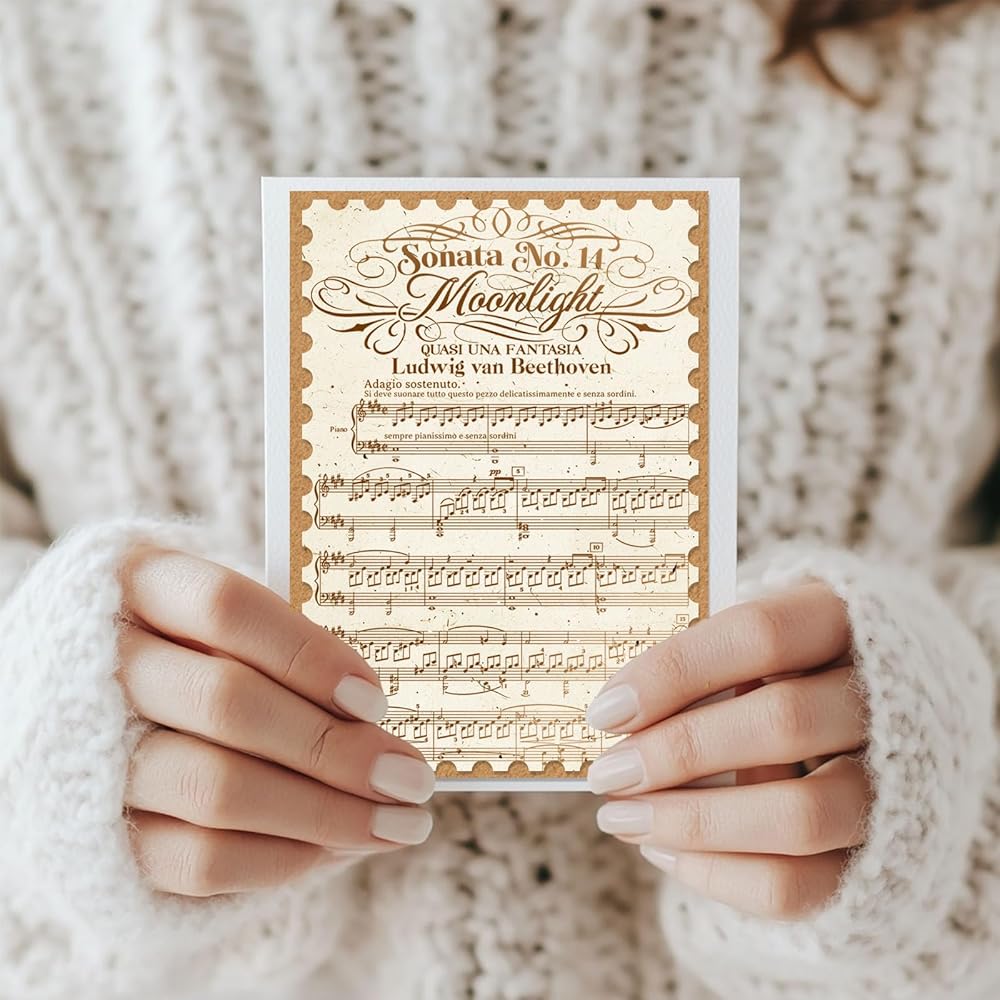 Sonata No. 14
Moonlight
QUASI UNA FANTASIA
Ludwig van Beethoven
Adagio sostenuto.
Si deve suonare tutto questo pezzo delicatissimamente e senza sordini.
Piano
sempre pianissimo e senza sordini
pp
5
10
15